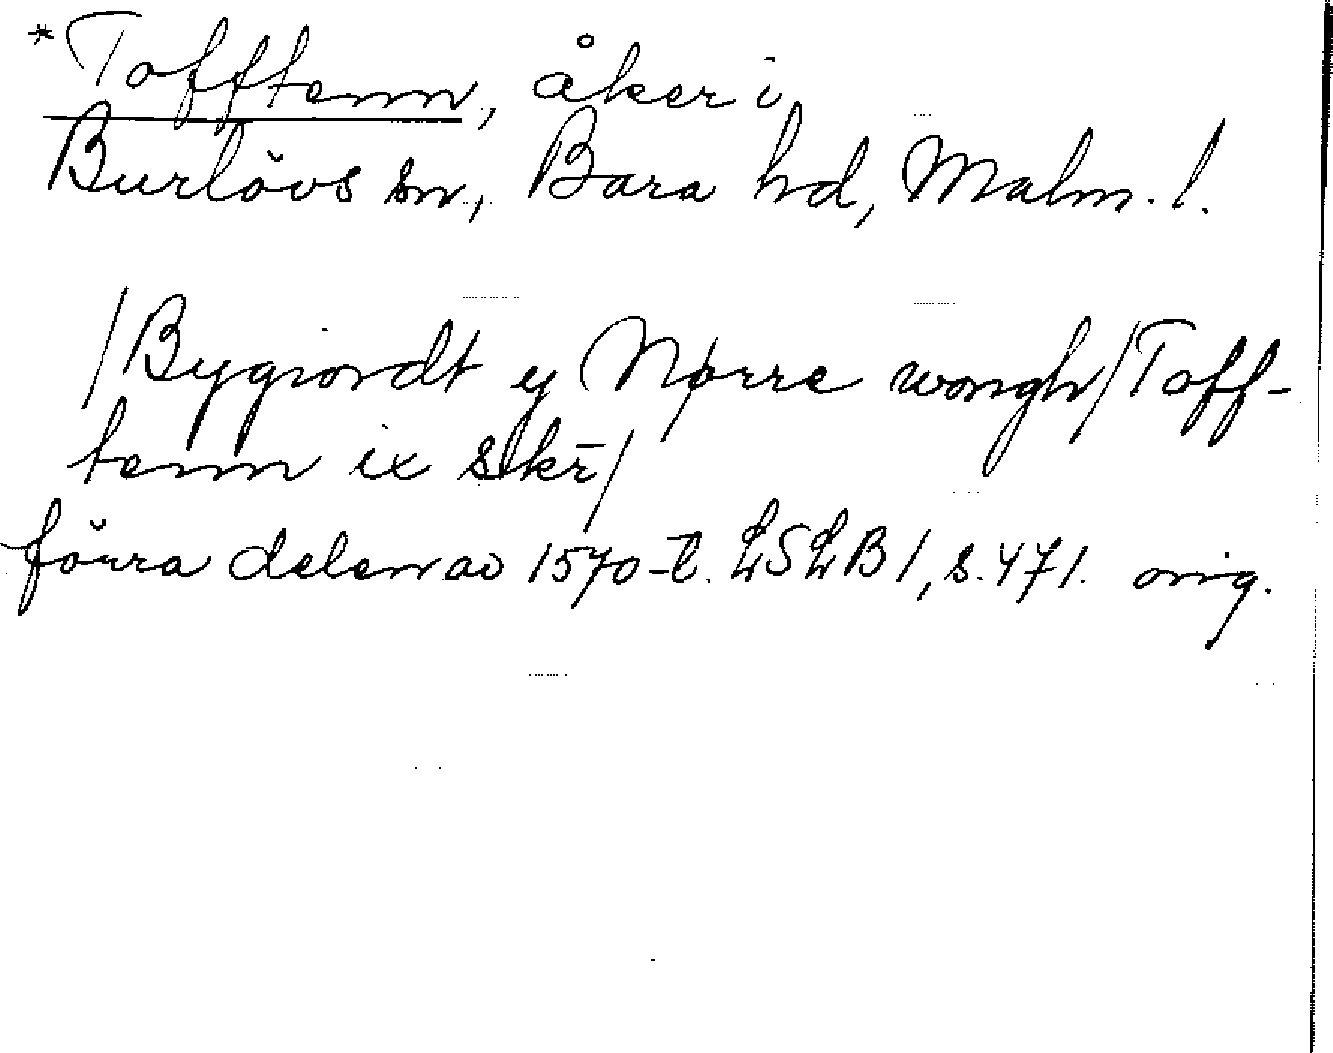 *Tofftenn, åker i
Burlövs sn, Bara hd, Malm. l.
/Bygiordt y Nørre wongh/Toff-
tenn ix skr̄/
förra delen av 1570-t. LSLB 1, s. 471. orig.